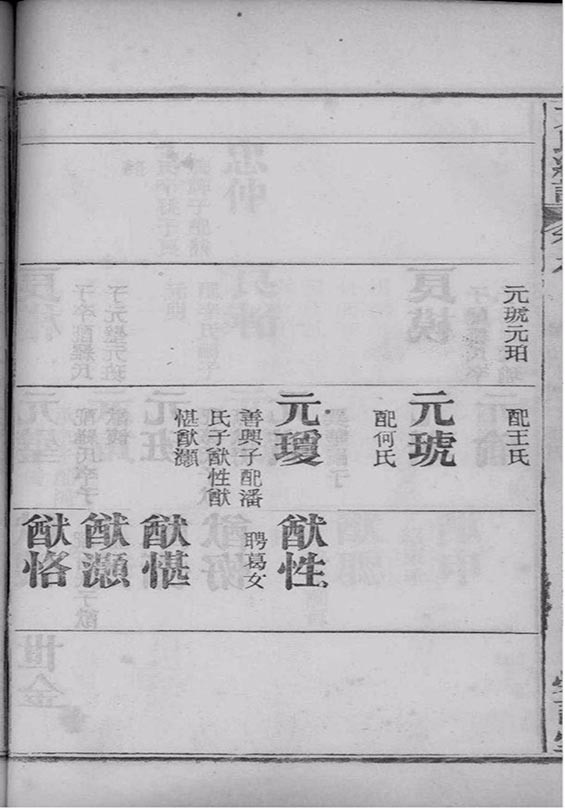 元琥元珀
配王氏
元琥
配何氏
元瑷
善興子配潘
氏子猷性猷
愖猷灝
猷性
聘葛女
猷愖
猷灝
猷恪